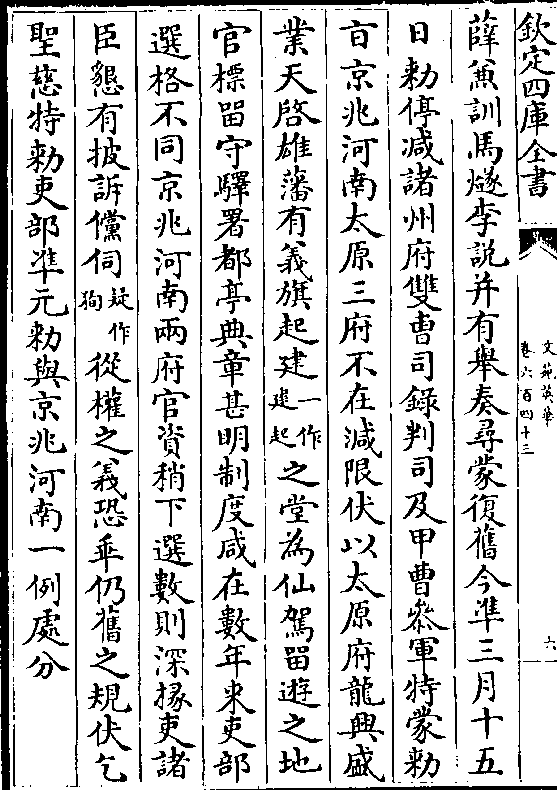 欽定四庫全書
文苑英華
卷六百四十三
六
薛兼訓馬燧李說并有舉奏尋蒙復舊今準三月十五
日勅停減諸州府雙曹司錄判司及甲曹叅軍特蒙勅
㫖京兆河南太原三府不在減限伏以太原府龍興盛
業天啓雄藩有義旗起建一作建起之堂為仙駕畱遊之地
官標畱守驛署都亭典章甚明制度咸在數年來吏部
選格不同京兆河南兩府官資稍下選數則深據吏諸
臣懇有披訴儻伺疑作狥從權之義恐乖仍舊之規伏乞
聖慈特勅吏部準元勅與京兆河南一例處分